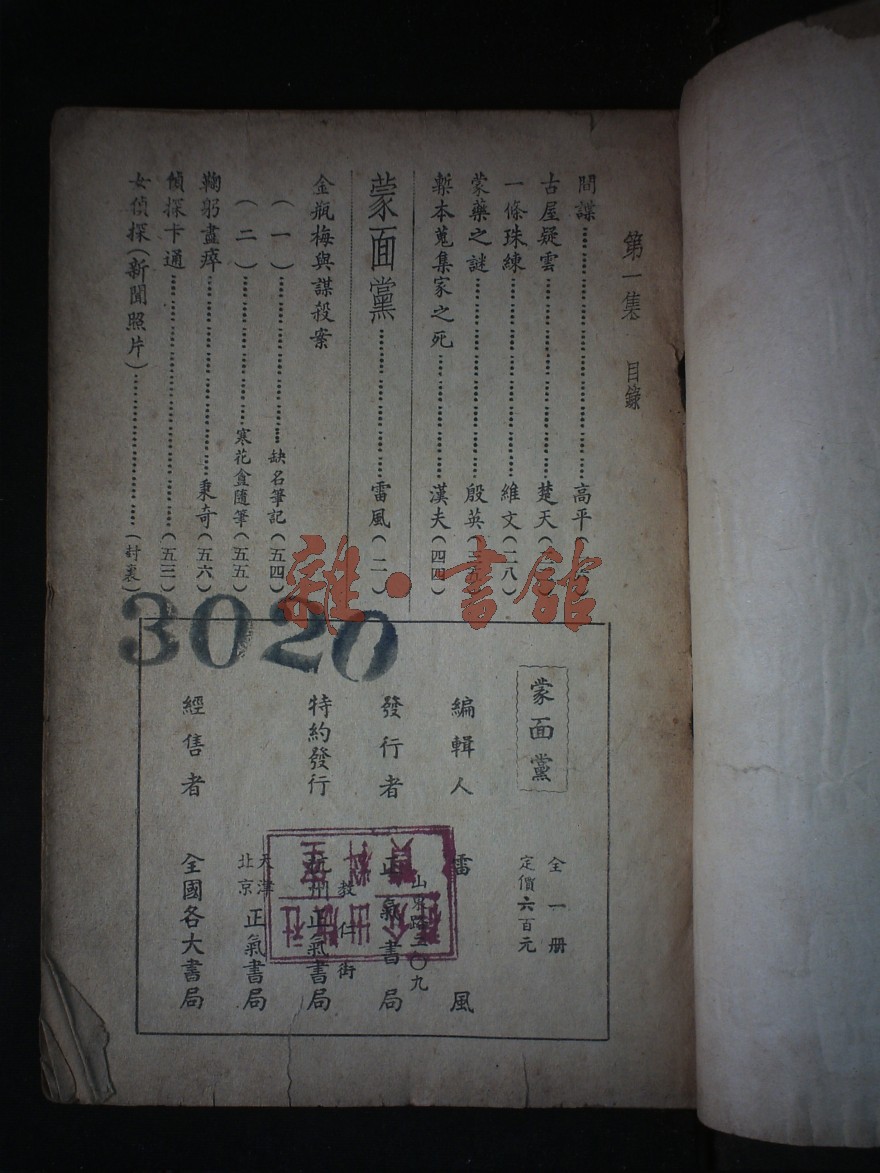 第一集 目錄
間諜 高平
古屋疑雲 楚天
一條珠練 維文(二八)
蒙藥之謎 殷英
槧本蒐集家之死 漢夫(四四)
蒙面黨 雷風(二一)
金瓶梅與謀殺案
(一) 缺名筆記(五四)
(二) 寒花盦隨筆(五五)
鞠躬盡瘁 秉奇(五六)
偵探卡通 (五三)
女偵探(新聞照片) (封裏)
雜·書館
3020
蒙面黨
全一册
定價六百元
編輯人 雷風
發行者 正氣書局
山東路二〇九
特約發行 杭州 正氣書局
教仁街
天津
北京 正氣書局
經售者 全國各大書局
出版社
資料室